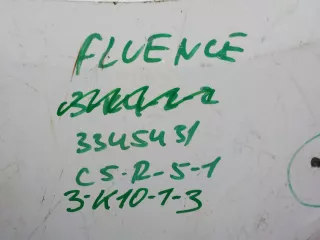 FLUENCE
3345431
C5-R-5-1
3-K10-1-3